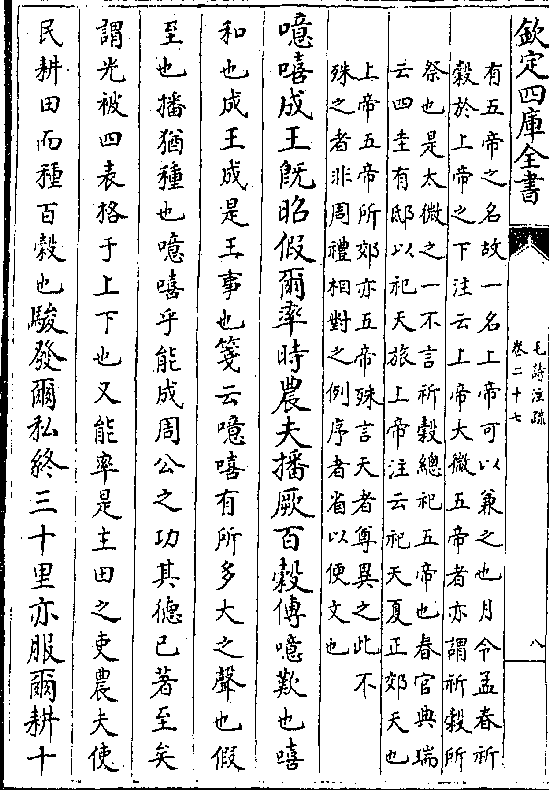 欽定四庫全書
毛詩注疏
卷二十七
八
有五帝之名故一名上帝可以兼之也月令孟春祈
穀於上帝之下注云上帝大微五帝者亦謂祈穀所
祭也是太微之一不言祈穀總祀五帝也春官典瑞
云四圭有邸以祀天旅上帝注云祀天夏正郊天也
上帝五帝所郊亦五帝殊言天者尊異之此不
殊之者非周禮相對之例序者省以便文也
噫嘻成王既昭假爾率時農夫播厥百穀傳噫歎也嘻
和也成王成是王事也箋云噫嘻有所多大之聲也假
至也播猶種也噫嘻乎能成周公之功其德已著至矣
謂光被四表格于上下也又能率是主田之吏農夫使
民耕田而種百穀也駿發爾私終三十里亦服爾耕十